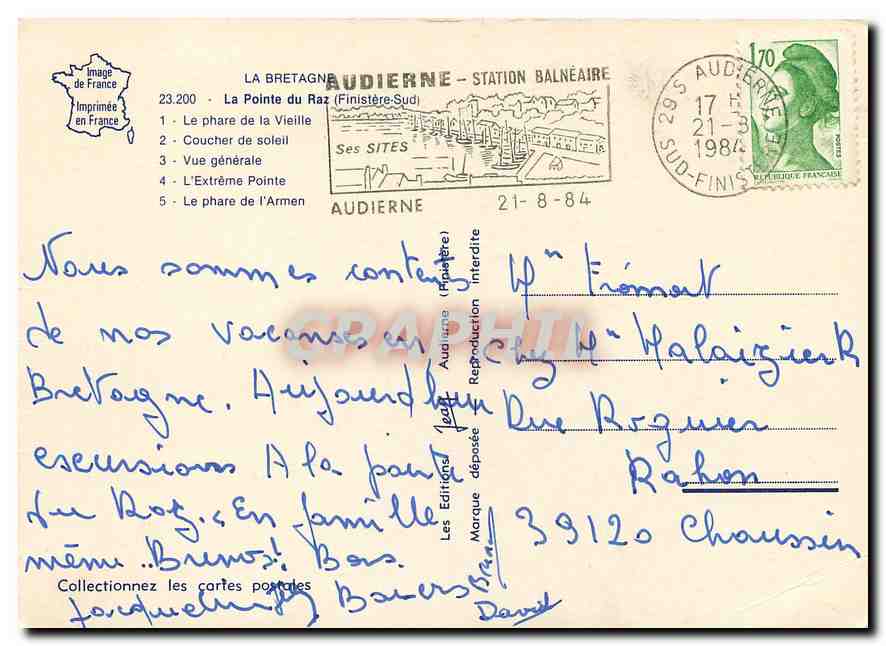 Image
de France
Imprimée
en France
LA BRETAGNE
23.200 - La Pointe du Raz (Finistère-Sud)
1 - Le phare de la Vieille
2 - Coucher de soleil
3 - Vue générale
4 - L'Extrême Pointe
5 - Le phare de l'Armen
AUDIERNE - STATION BALNÉAIRE
Ses SITES
AUDIERNE 21-8-84
29 S AUDIERNE
17 H
21-8
1984
SUD-FINISTERE
1,70
POSTES
REPUBLIQUE FRANCAISE
Nous sommes contents
de nos vacanses en
Bretagne. Aujourd'hui
escursions A la pointe
du Raz. En famille
même
Jacqueline
Bruno
David
Les Editions Jean Audierne (Finistère)
Marque déposée - Reproduction interdite
Mr Frémont
Chez Mr Malaizier R
Rue Roguier
Rahon
39120 Chaussin
Collectionnez les cartes postales
CPAPHIL